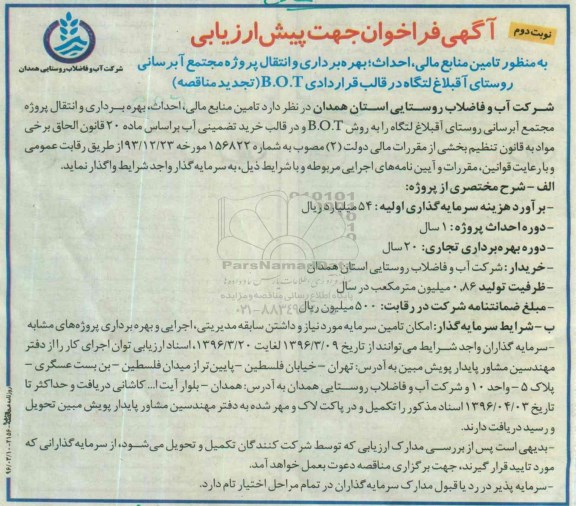 نوبت دوم
آگهی فراخوان جهت پیش ارزیابی
شرکت آب و فاضلاب روستایی همدان
به منظور تامین منابع مالی، احداث؛ بهره برداری و انتقال پروژه مجتمع آبرسانی
روستای آقبلاغ لتگاه در قالب قراردادی B.O.T (تجدید مناقصه)
شرکت آب و فاضلاب روستایی استان همدان در نظر دارد تامین منابع مالی، احداث، بهره برداری و انتقال پروژه
مجتمع آبرسانی روستای آقبلاغ لتگاه را به روش B.O.T و در قالب خرید تضمینی آب براساس ماده ۲۰ قانون الحاق برخی
مواد به قانون تنظیم بخشی از مقررات مالی دولت (۲) مصوب به شماره ۱۵۶۸۲۲ مورخه ۹۳/۱۲/۲۳ از طریق رقابت عمومی
و با رعایت قوانین، مقررات و آیین نامه‌های اجرایی مربوطه و با شرایط ذیل، به سرمایه گذار واجد شرایط واگذار نماید.
الف - شرح مختصری از پروژه:
-برآورد هزینه سرمایه گذاری اولیه: ۵۴ میلیارد ریال
-دوره احداث پروژه: ۱ سال
-دوره بهره برداری تجاری: ۲۰ سال
-خریدار: شرکت آب و فاضلاب روستایی استان همدان
-ظرفیت تولید ۰.۸۶ میلیون مترمکعب در سال
-مبلغ ضمانتنامه شرکت در رقابت: ۵۰۰ میلیون ریال
ب - شرایط سرمایه گذار: امکان تامین سرمایه مورد نیاز و داشتن سابقه مدیریتی، اجرایی و بهره برداری پروژه‌های مشابه
-سرمایه گذاران واجد شرایط می توانند از تاریخ ۱۳۹۶/۳/۰۹ لغایت ۱۳۹۶/۳/۲۰، اسناد ارزیابی توان اجرای کار را از دفتر
مهندسین مشاور پایدار پویش مبین به آدرس: تهران - خیابان فلسطین - پایین تر از میدان فلسطین - بن بست عسگری -
پلاک ۵ - واحد ۱۰ و شرکت آب و فاضلاب روستایی همدان به آدرس: همدان - بلوار آیت ا... کاشانی دریافت و حداکثر تا
تاریخ ۱۳۹۶/۰۴/۰۳ اسناد مذکور را تکمیل و در پاکت لاک و مهر شده به دفتر مهندسین مشاور پایدار پویش مبین تحویل
و رسید دریافت دارند.
-بدیهی است پس از بررسی مدارک ارزیابی که توسط شرکت کنندگان تکمیل و تحویل می‌شود، از سرمایه گذارانی که
مورد تایید قرار گیرند، جهت برگزاری مناقصه دعوت بعمل خواهد آمد.
-سرمایه پذیر در رد یا قبول مدارک سرمایه گذاران در تمام مراحل اختیار تام دارد.
ParsNamadData
۰۲۱-۸۸۳۴۹